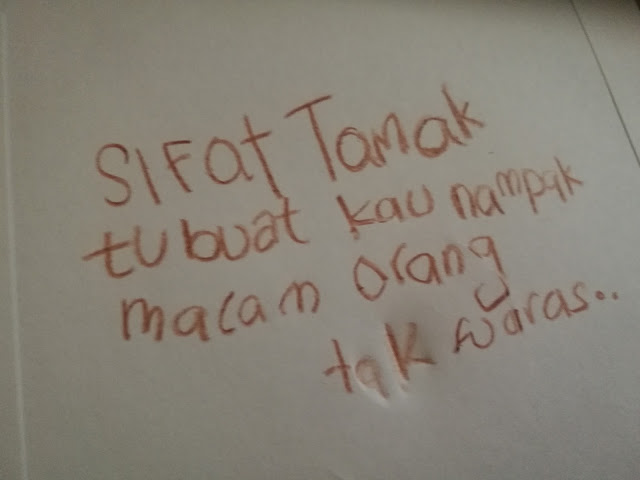 SIFat Tamak
tu buat kau nampak
macam orang
tak waras..